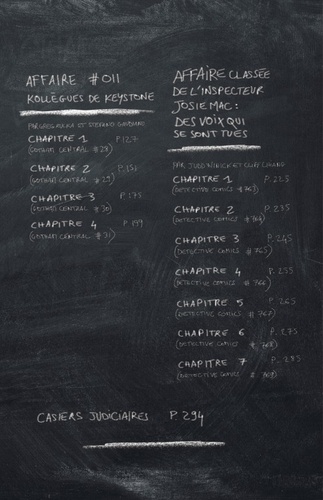 AFFAIRE #011
KOLLÈGUES DE KEYSTONE
PAR GREG RUCKA ET STEFANO GAUDIANO
CHAPITRE 1 P.127
(GOTHAM CENTRAL #28)
CHAPITRE 2 P.151
(GOTHAM CENTRAL #29)
CHAPITRE 3 P.175
(GOTHAM CENTRAL #30)
CHAPITRE 4 P.199
(GOTHAM CENTRAL #31)
AFFAIRE CLASSÉE
DE L'INSPECTEUR
JOSIE MAC:
DES VOIX QUI
SE SONT TUES
PAR JUDD WINICK ET CLIFF CHIANG
CHAPITRE 1 P.225
(DETECTIVE COMICS #763)
CHAPITRE 2 P.235
(DETECTIVE COMICS #764)
CHAPITRE 3 P.245
(DETECTIVE COMICS #765)
CHAPITRE 4 P.255
(DETECTIVE COMICS #766)
CHAPITRE 5 P.265
(DETECTIVE COMICS #767)
CHAPITRE 6 P.275
(DETECTIVE COMICS #768)
CHAPITRE 7 P.285
(DETECTIVE COMICS #769)
CASIERS JUDICIAIRES P.294